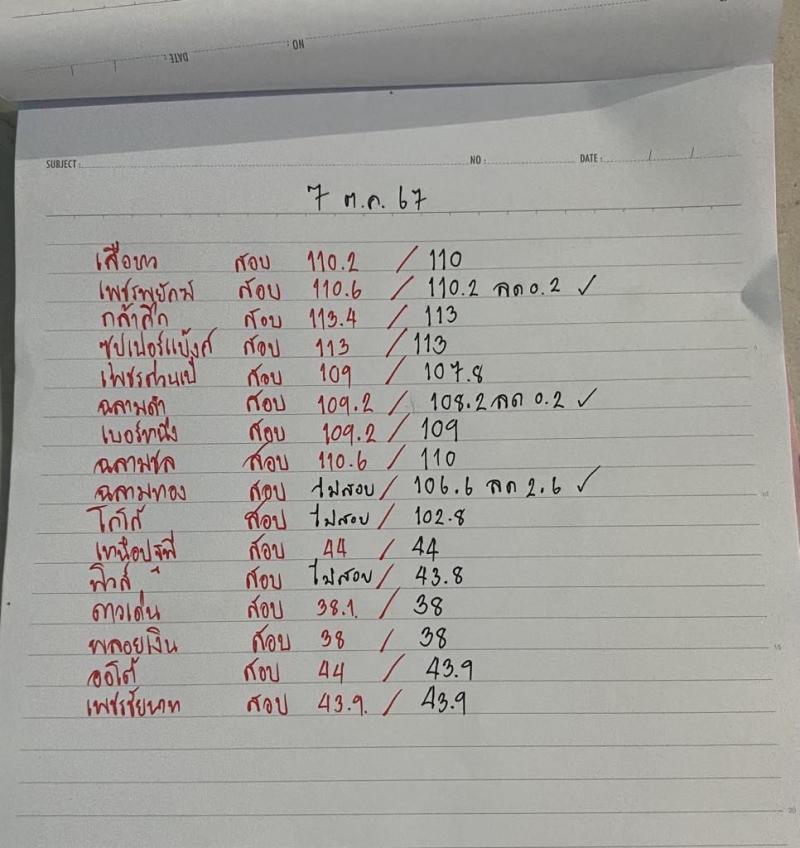 NO :
DATE :
SUBJECT :
NO :
DATE : / /
7 ต.ค. 67
เสือขาว สอบ 110.2 / 110
เพชรพยัคฆ์ สอบ 110.6 / 110.2 ลด 0.2 ✓
กล้าศึก สอบ 113.4 / 113
ซุปเปอร์แบ๊งค์ สอบ 113 / 113
สอบ 109 / 107.8
ฉลามดำ สอบ 109.2 / 108.2 ลด 0.2 ✓
เบอร์หนึ่ง สอบ 109.2 / 109
ฉลามชล สอบ 110.6 / 110
ฉลามทอง สอบ ไม่สอบ / 106.6 ลด 2.6 ✓
โกโก้ สอบ ไม่สอบ / 102.8
สอบ 44 / 44
ฟิวส์ สอบ ไม่สอบ / 43.8
ดาวเด่น สอบ 38.1. / 38
พลอยเงิน สอบ 38 / 38
ออโต้ สอบ 44 / 43.9
เพชรชัยนาท สอบ 43.9. / 43.9